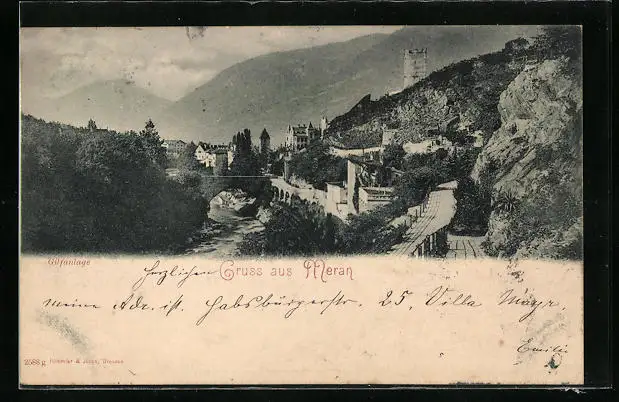 Gilfanlage
herzlichen Gruss aus Meran
meine Adr. ist. Habsburgerstr. 25, Villa Mayr.
Emilie
2588 g Römmler & Jonas, Dresden